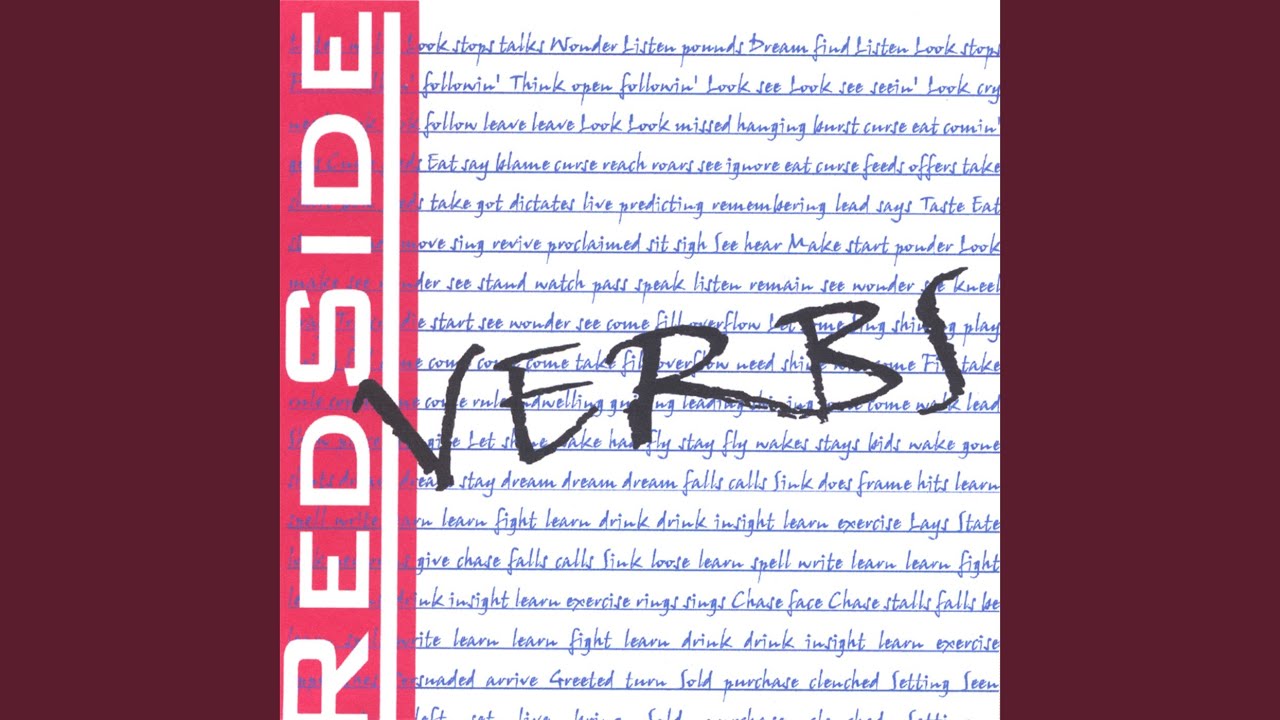 REDSIDE
VERBS
Look stops talks Wonder Listen pounds Dream find Listen Look stops
followin' Think open followin' Look see Look see seein' Look cry
follow leave leave Look Look missed hanging burst curse eat comin'
Eat say blame curse reach roars see ignore eat curse feeds offers take
take got dictates live predicting remembering lead says Taste Eat
move sing revive proclaimed sit sigh See hear Make start ponder Look
make see wonder see stand watch pass speak listen remain see wonder see kneel
die start see wonder see come fill overflow Let shining play
come come take fill overflow need shine come Fill take
rule come come rule indwelling guiding leading shining come walk lead
give Let shine wake had fly stay fly wakes stays bids wake gone
dream stay dream dream dream falls calls Sink does frame hits learn
spell write learn learn fight learn drink drink insight learn exercise Lays State
give chase falls calls Sink loose learn spell write learn learn fight
drink insight learn exercise rings sings Chase face Chase stalls falls be
write learn learn fight learn drink drink insight learn exercise
Persuaded arrive Greeted turn Sold purchase clenched Setting Seen
left eat live bring Sold purchase clenched Setting